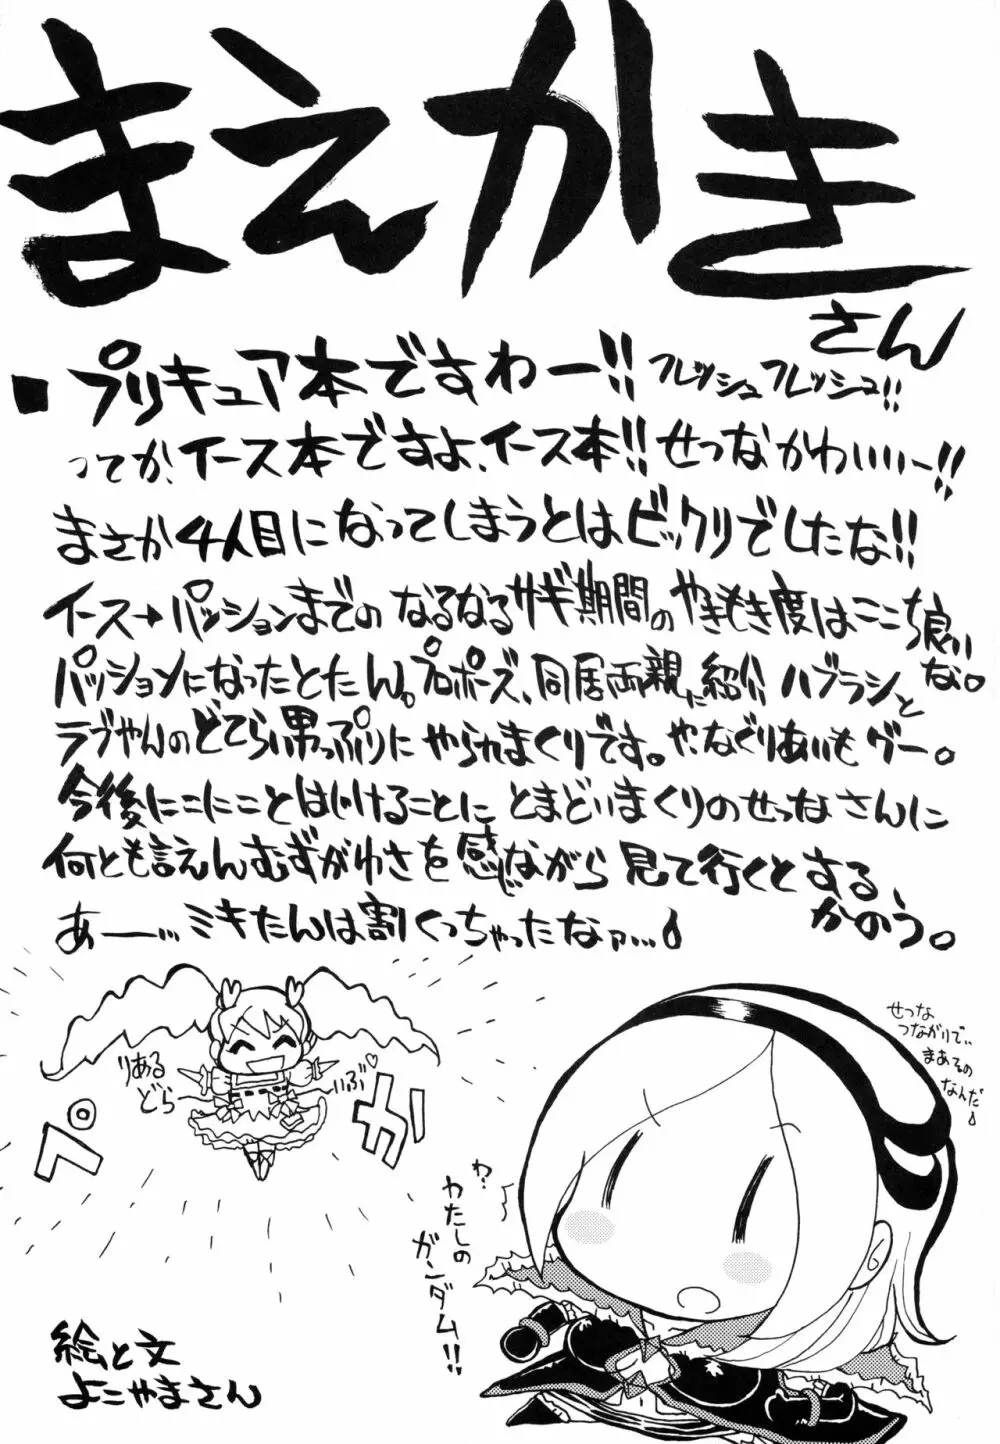 まえかき
さん
■プリキュア本ですわー!! フレッシュフレッシュ!!
ってか、イース本ですよ、イース本!! せつなかわいいー!!
まさか4人目になってしまうとはビックリでしたな!!
イース→パッションまでのなるなるサギ期間のやきもき度はここち良いな。
パッションになったとたん。プロポーズ、同居両親に紹介ハブラシと
ラブやんのどてらい男っぷりにやられまくりです。や、なぐりあいもグー。
今後にこにことはじけることにとまどいまくりのせつなさんに
何とも言えんむずがゆさを感じながら見て行くとする、
かのう。
あー…ミキたんは割くっちゃったなァ…
りある
どら
いぶ♥
ペカ
せつな
つながりで、
まあその
なんだ
わ?
わたしの
ガンダム!!
絵と文
よこやまさん